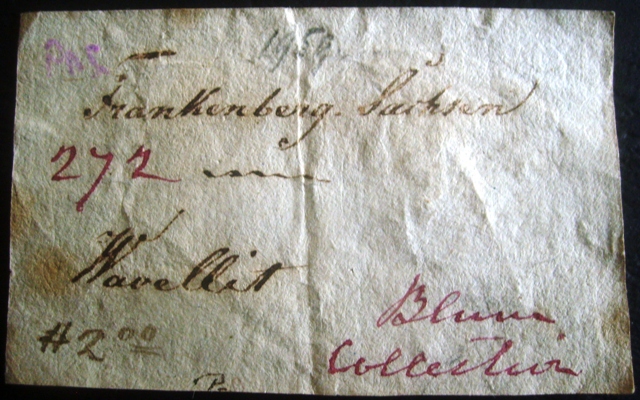 195
Frankenberg. Sachsen
272
Wavellit
Blum
Collection
#2.00